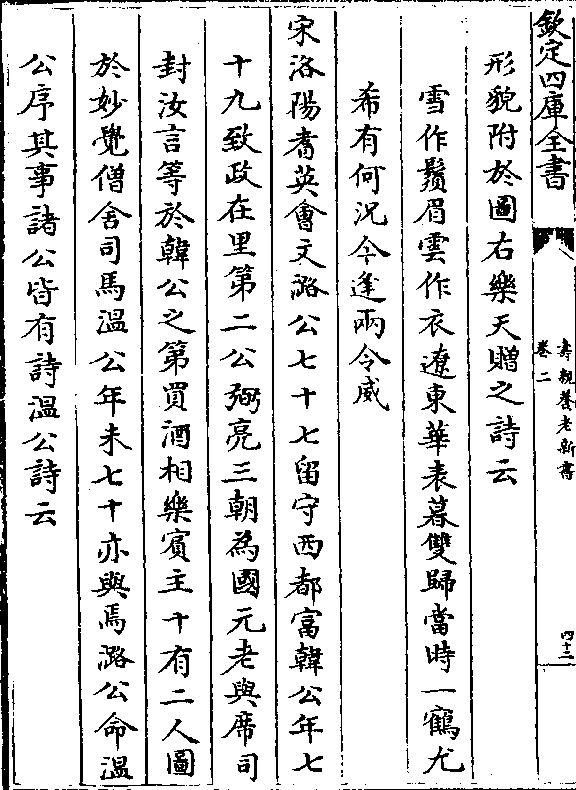 欽定四庫全書
壽親養老新書
卷二
四十二
形貌附於圖右樂天贈之詩云
雪作鬚眉雲作衣遼東華表暮雙歸當時一鶴尤
希有何況今逢兩令威
宋洛陽耆英會文潞公七十七留守西都富韓公年七
十九致政在里第二公弼亮三朝為國元老與席司
封汝言等於韓公之第買酒相樂賓主十有二人圖
於妙覺僧舍司馬溫公年未七十亦與焉潞公命溫
公序其事諸公皆有詩溫公詩云